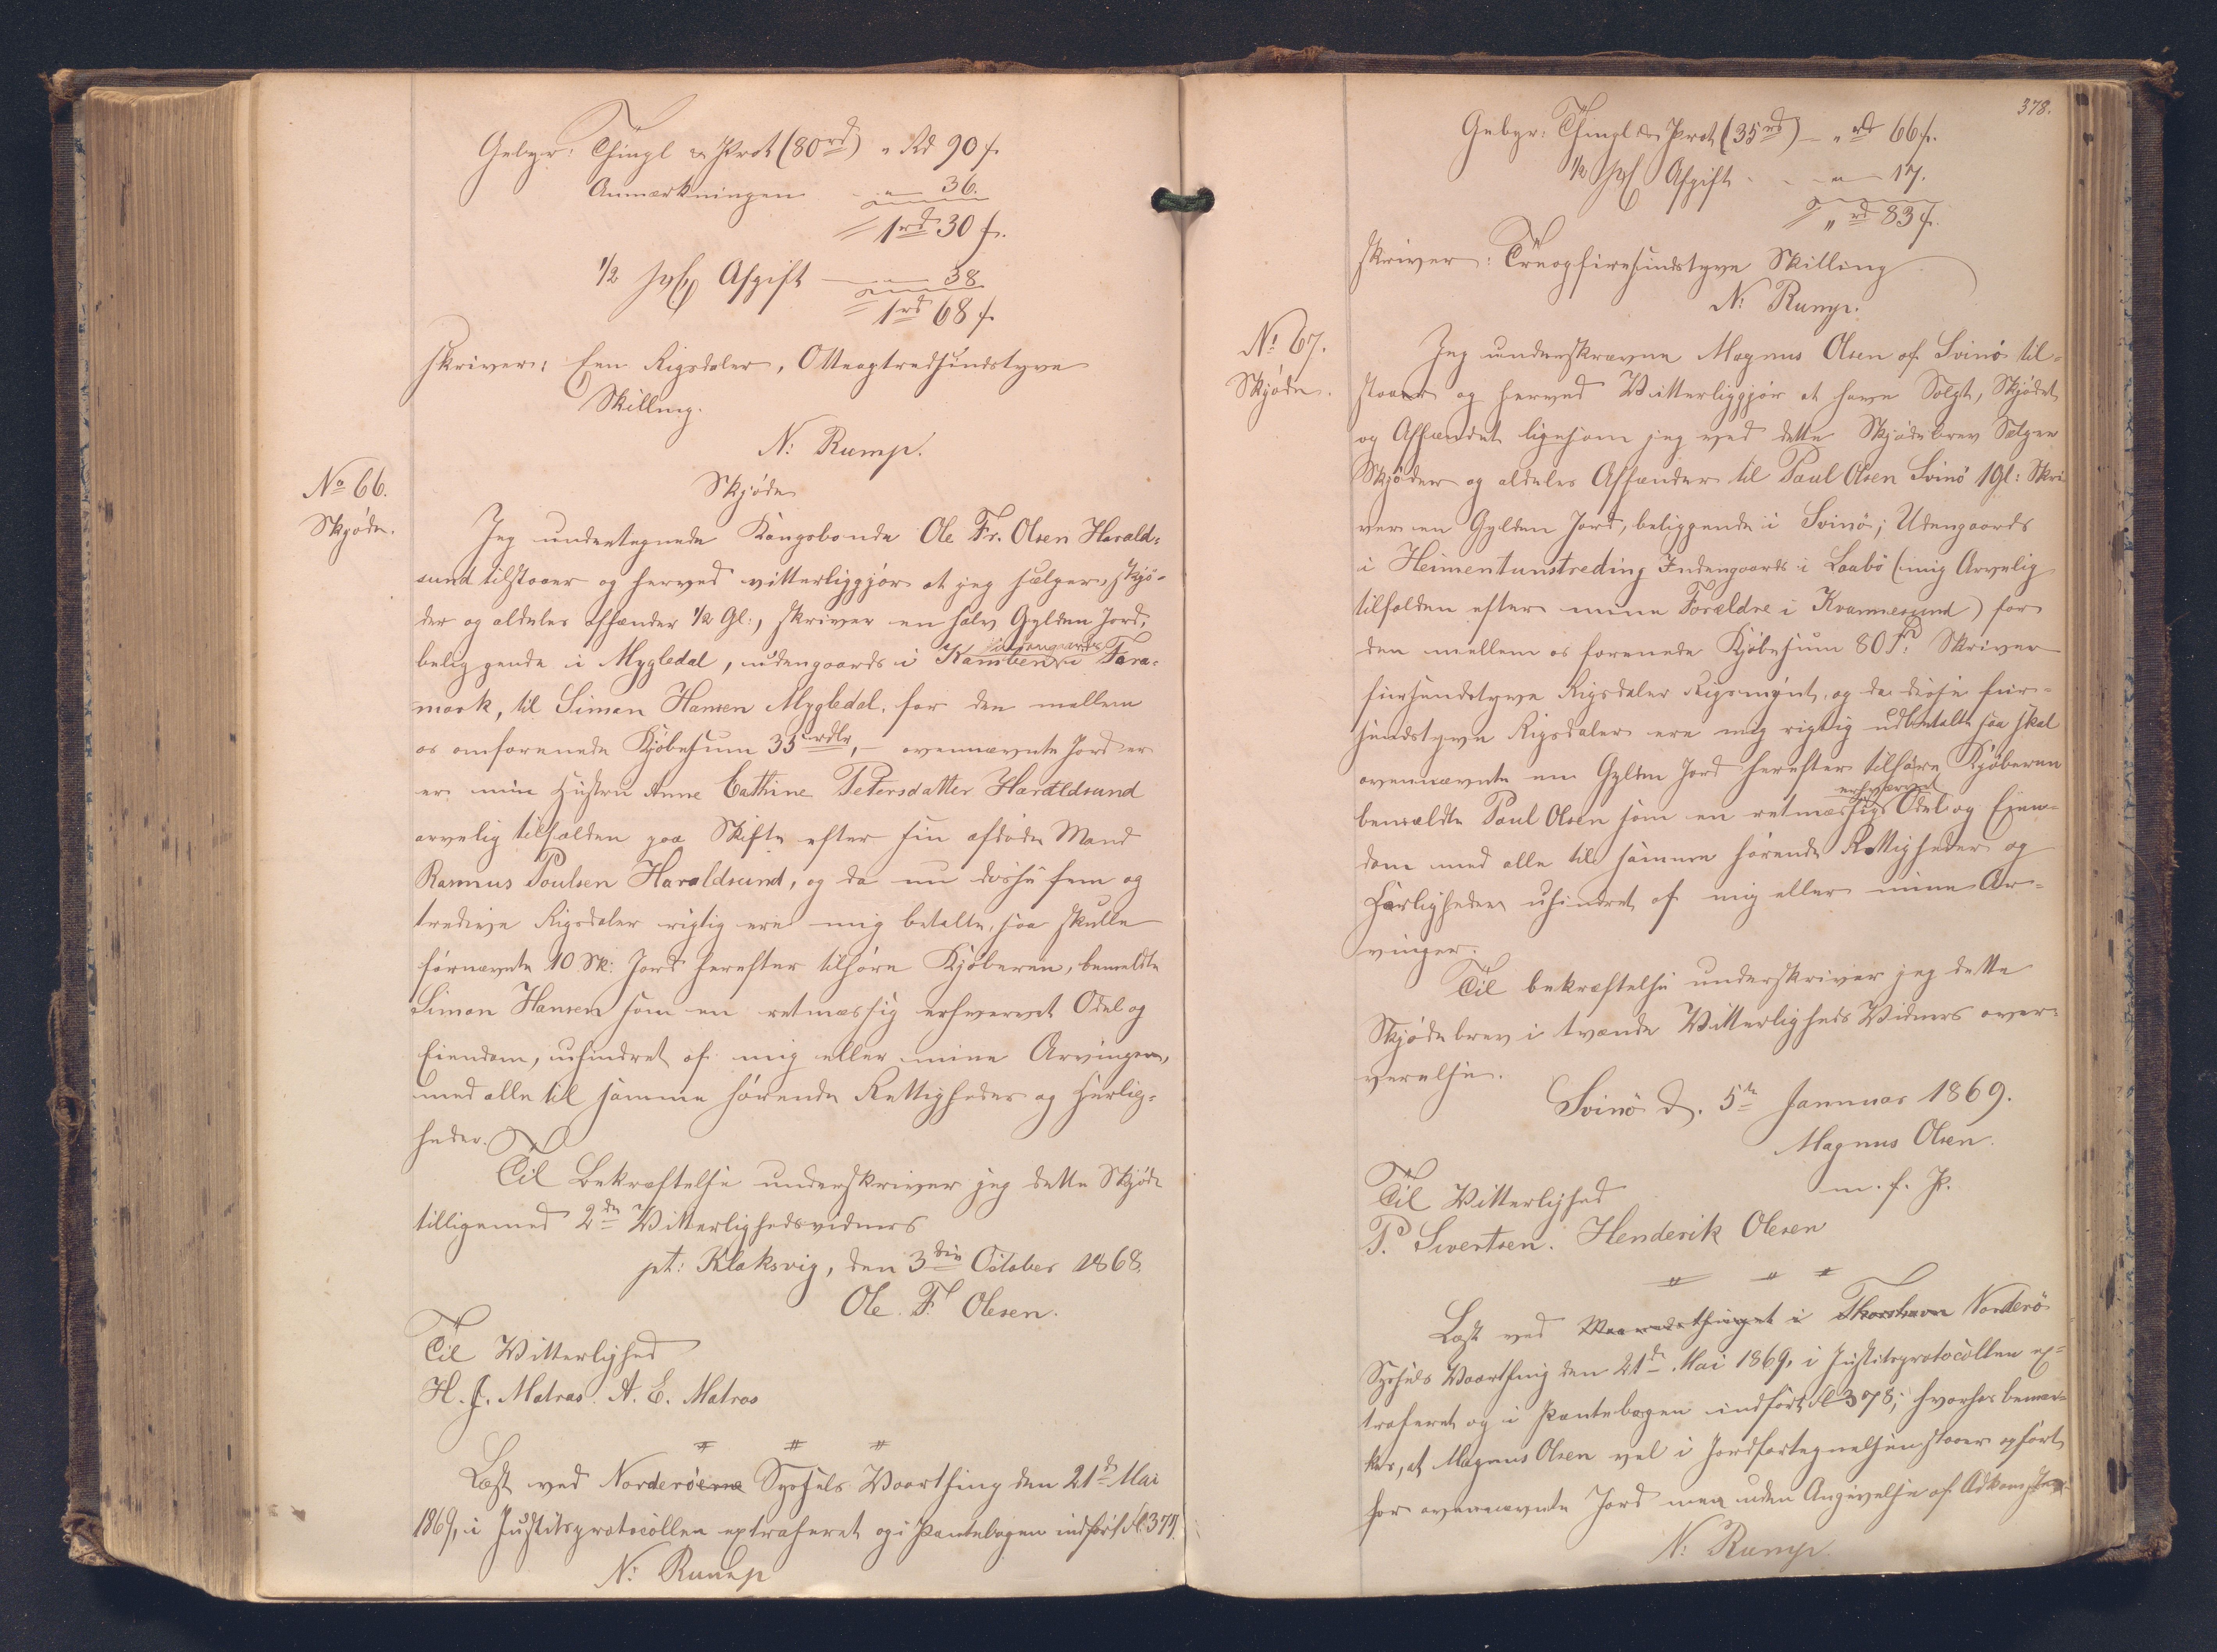 Gebyr: Thingl & Prot (80rd) " Rd 90 f.
Anmærkningen — " — 36.
1rd 30 f.
1/2 pCt Afgift — " — 38
1rd 68 f.
skriver: Een Rigsdaler, Otteogtredsindstyve
Skilling.
N: Rump.
No 66.
Skjøde.
Skjøde
Jeg undertegnede Kongsbonde Ole Fr. Olsen Harald-
sund tilstaaer og herved vitterliggjør at jeg sælger, skjø-
der og aldeles affhænder 1/2 Gl:, skriver en halv Gylden Jord,
beliggende i Mygledal, udengaards i Kamben indengaards i Fara-
mark, til Simon Hansen Mygledal, for den mellem
os omforenede Kjøbesum 35 rdlr, — ovennævnte Jord er
er min Hustru Anne Cathine Petersdatter Haraldsund
arvelig tilfalden paa Skifte efter sin afdøde Mand
Rasmus Poulsen Haraldsund, og da nu disse fem og
tredive Rigsdaler rigtig ere mig betalte, saa skulle
førnævnte 10 Sk: Jord herefter tilhøre Kjøberen, bemeldte
Simon Hansen som en retmæssig erhvervet Odel og
Eiendom, uhindret af mig eller mine Arvinger,
med alle til samme hørende Rettigheder og Herlig-
heder.
Til Bekræftelse underskriver jeg dette Skjøde
tilligemed 2de Vitterlighedsvidners
pt: Klaksvig, den 3die October 1868.
Ole F. Olesen.
Til Vitterlighed
H. J. Matras. A. E. Matras
Læst ved Norderöerne Syssels Vaarthing den 21de Mai
1869, i Justitsprotocollen extraheret og i Pantebogen indført fol. 377.
N: Rump
378.
Gebyr: Thingl & Prot (35rd) — " rd 66 f.
1/2 pCt Afgift — " — 17.
" rd 83 f.
skriver: Treogfiresindstyve Skilling
N: Rump.
No 67.
Skjøde.
Jeg underskrevne Magnus Olsen af Svinö til-
staaer og herved Vitterliggjør at have Solgt, Skjødet
og Affhændet ligesom jeg ved dette Skjødebrev Sælger
Skjøder og aldeles Affhænder til Paul Olsen Svinö 1 Gl: Skri-
ver en Gylden Jord, beliggende i Svinö; Udengaards
i Heimentunstreding Indengaards i Laabö (mig Arvelig
tilfalden efter mine Forældre i Kvannesund) for
den mellem os forenede Kjøbesum 80 rd: Skriver
firsindstyve Rigsdaler Rigsmynt, og da disse fiir-
sindstyve Rigsdaler ere mig rigtig udbetalte saa skal
ovennævnte en Gylden Jord herefter tilhøre Kjøberen
bemældte Paul Olsen som en retmæssigt erhvervet Odel og Eien-
dom med alle til samme hørende Rettigheder og
Herligheder uhindret af mig eller mine Ar-
vinger.
Til bekræftelse underskriver jeg dette
Skjødebrev i tvende Vitterligheds Vidners over-
værelse.
Svinö d. 5te Januar 1869.
Magnus Olsen.
m. f. P.
Til Vitterlighed
P. Sivertsen. Henderik Olesen
Læst ved Maanedsthinget i Thorshavn Norderö
Syssels Vaarthing den 21de Mai 1869, i Justitsprotocollen ex-
traheret og i Pantebogen indført fol 378; hvorhos bemær-
kes, at Magnus Olsen vel i Jordfortegnelsen staaer opført
for ovennævnte Jord men uden Angivelse af Adkomsten.
N: Rump